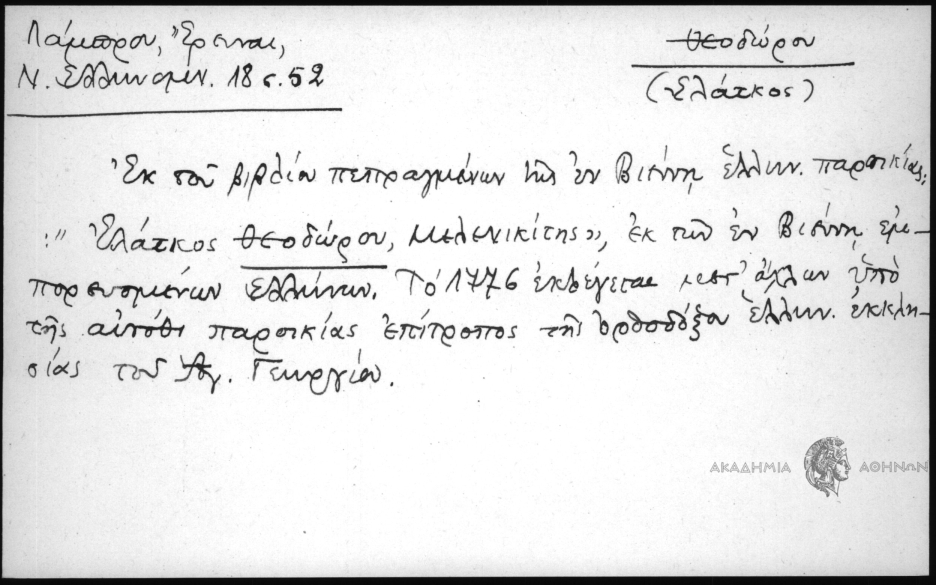 Λάμπρου, Ἔρευναι,
Ν. Ἑλληνομν. 18 σ. 52
Θεοδώρου
(Ἐλάτκος)
Ἐκ τοῦ βιβλίου πεπραγμένων τῆς ἐν Βιέννῃ ἑλλην. παροικίας:
:" Ἐλάτκος Θεοδώρου, Μελενικίτης», ἐκ τῶν ἐν Βιέννῃ ἐμ-
πορευομένων Ἑλλήνων. Τὸ 1776 ἐκλέγεται μετ' ἄλλων ὑπὸ
τῆς αὐτόθι παροικίας ἐπίτροπος τῆς ὀρθοδόξου ἑλλην. ἐκκλη-
σίας τοῦ Ἁγ. Γεωργίου.
ΑΚΑΔΗΜΙΑ ΑΘΗΝΩΝ